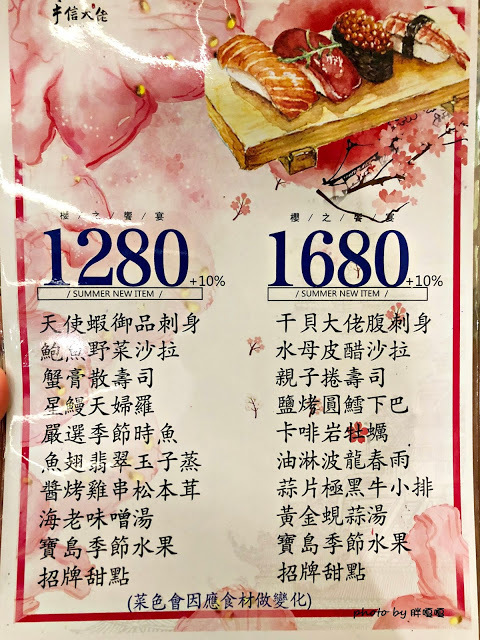 丰信大佬
櫻/之/饗/宴
1280+10%
/ SUMMER NEW ITEM /
天使蝦御品刺身
鮑魚野菜沙拉
蟹膏散壽司
星鰻天婦羅
嚴選季節時魚
魚翅翡翠玉子蒸
醬烤雞串松本茸
海老味噌湯
寶島季節水果
招牌甜點
櫻/之/饗/宴
1680+10%
/ SUMMER NEW ITEM /
干貝大佬腹刺身
水母皮醋沙拉
親子捲壽司
鹽烤圓鱈下巴
卡啡岩牡蠣
油淋波龍春雨
蒜片極黑牛小排
黃金蜆蒜湯
寶島季節水果
招牌甜點
(菜色會因應食材做變化)
photo by 胖嘎嘎